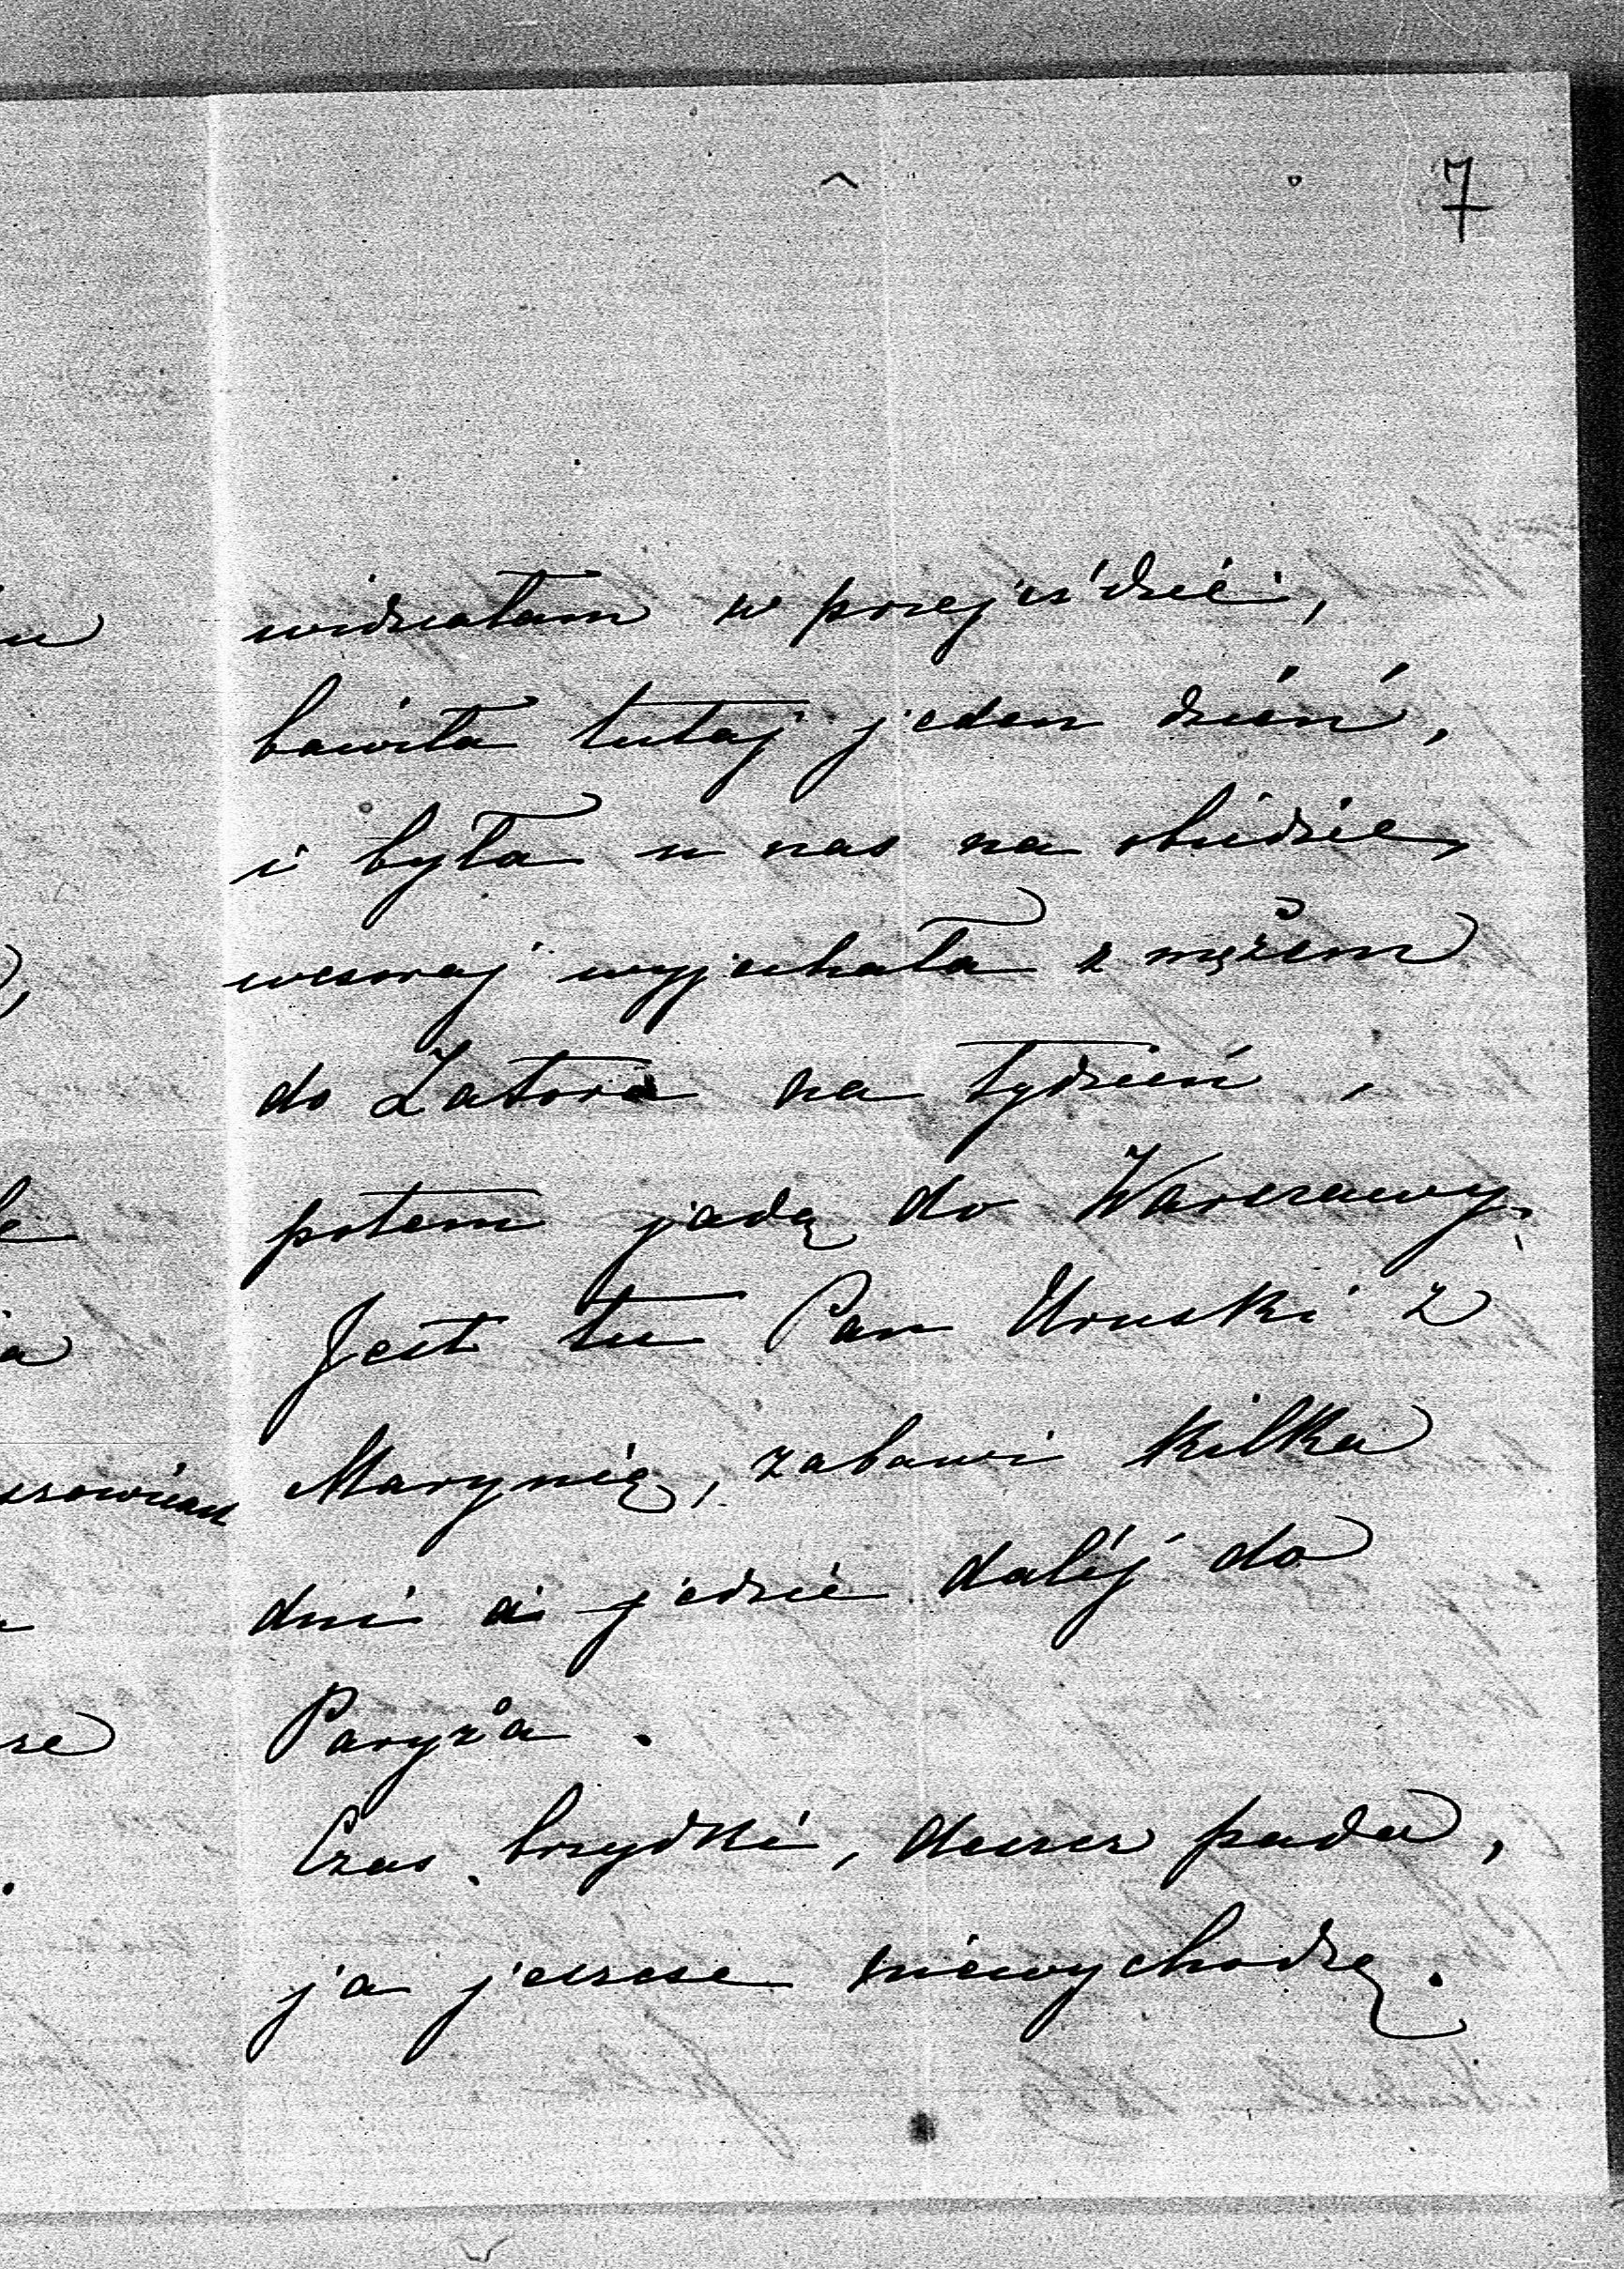 7
widziałam w przejeździe,
bawiła tutaj jeden dzień,
i była u nas na obiedzie,
wczoraj wyjechała z mężem
do Zatora na tydzień,
potem jadą do Warszawy.
Jest tu Pan Uruski z
Marynią, zabawi kilka
dni i jedzie daléj do
Paryża.
Czas brzydki, deszcz pada,
ja jeszcze niewychodzę.